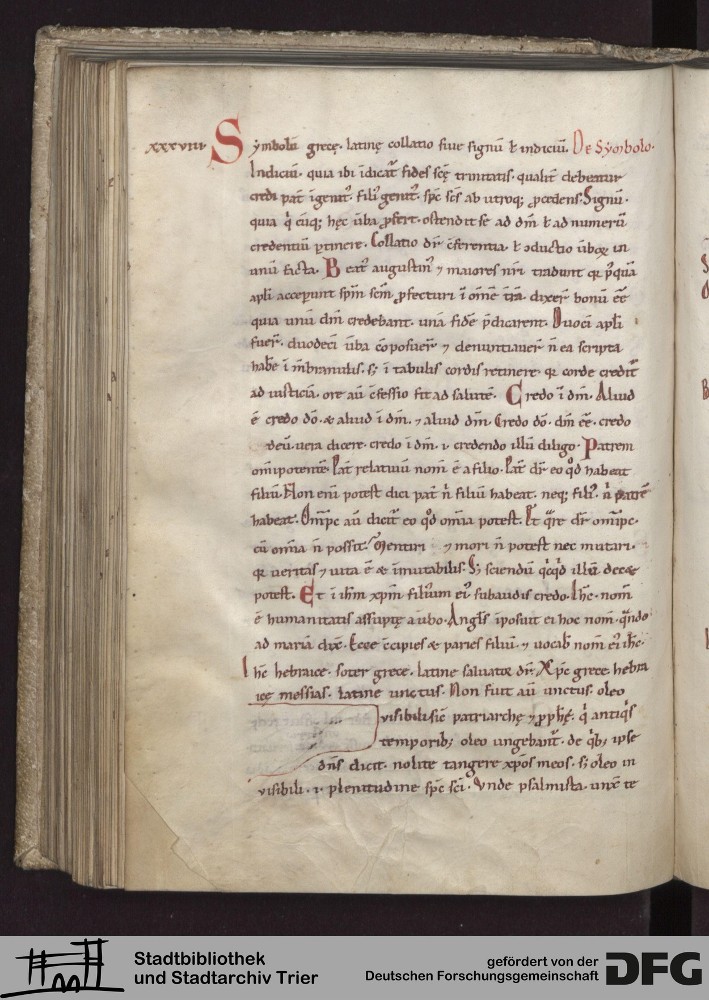 xxxviiii. Symbolū grecę. latinę collatio siue signū ł indiciū. De Symbolo.
Indiciū. quia ibi īdicat᷒ fides scę trinitatis. qualit̄ debeatur
credi pat̄ īgenit᷒. fili᷒ genit᷒. sp̄c sc̄s ab utroq; ꝓcedens. Signū.
quia q̇ cūq; hęc ūba ꝓfert. ostendit se ad dm̄. ł ad numerū
credentiū ꝑtinere. Collatio dr̄ c̄ferentia. ł ɔductio ūboꝝ in
unū facta. Beat᷒ augustin᷒ ⁊ maiores nr̄i tradunt qꝛ p᷒quā
apl̄i acceꝑunt spm̄ scm̄ ꝓfecturi ī om̄ē t̄rā. dixer̄ bonū ēē
quia unū dm̄ credebant. unā fidē p̄dicarent. Duoc̄i apl̄i
fuer̄. duodecī ūba cōposuer̄ ⁊ denuntiauer̄ n̄ ea scripta
hab̄e ī mēbranulis. s; ī tabulis cordis retinere. qꝛ corde credit᷒
ad iusticiā. ore aū c̄fessio fit ad salutē. Credo ī dm̄. Aliud
ē credo dō. & aliud ī dm̄. ⁊ aliud dm̄. Credo dō. dm̄ ēē. credo
deū. uera dicere. credo ī dm̄. i. credendo illū diligo. Patrem
omīpotentē. Pat̄ relatiuū nom̄ ē a filio. Pat̄ dr̄ eo qđ habeat
filiū. Non enī potest dici pat̄ n̄ filiū habeat. neq; fili᷒. n̄ patrē
habeat. Om̄pc aū dicit᷒ eo qđ om̄ia potest. Et q̄re dr̄ om̄ipc.
cū om̄ia n̄ possit? Mentiri ⁊ mori n̄ potest nec mutari.
qꝛ ueritas ⁊ uita ē & īmutabilis. S; sciendū qcqd illū dec&
potest. Et ī ih̄m xp̄m filium ei᷒ subaudis credo. Ih̄c. nom̄
ē humanitatis assūptę a ūbo. Angl̄s īposuit ei hoc nom̄. q̄ndo
ad mariā dix̄. Ecce c̄cipies & paries filiū. ⁊ uocab̄ nom̄ ei᷒ ih̄c.
Ih̄c hebraice. soter grece. latine saluator dr̄. Xp̄c grece. hebra
icę messias. latine unctus. Non fuit aū unctus. oleo
uisibili sic̄ patriarchę ⁊ ꝓph̄ę. q̇ antiq᷒s
temporib; oleo ungebant᷒. de q̇b; ipse
dn̄s dicit. nolite tangere xp̄os meos. s; oleo in
uisibili. i. plenitudine sp̄c sc̄i. Vnde psalmista. unx̄ te
Stadtbibliothek
und Stadtarchiv Trier
gefördert von der
Deutschen Forschungsgemeinschaft
DFG